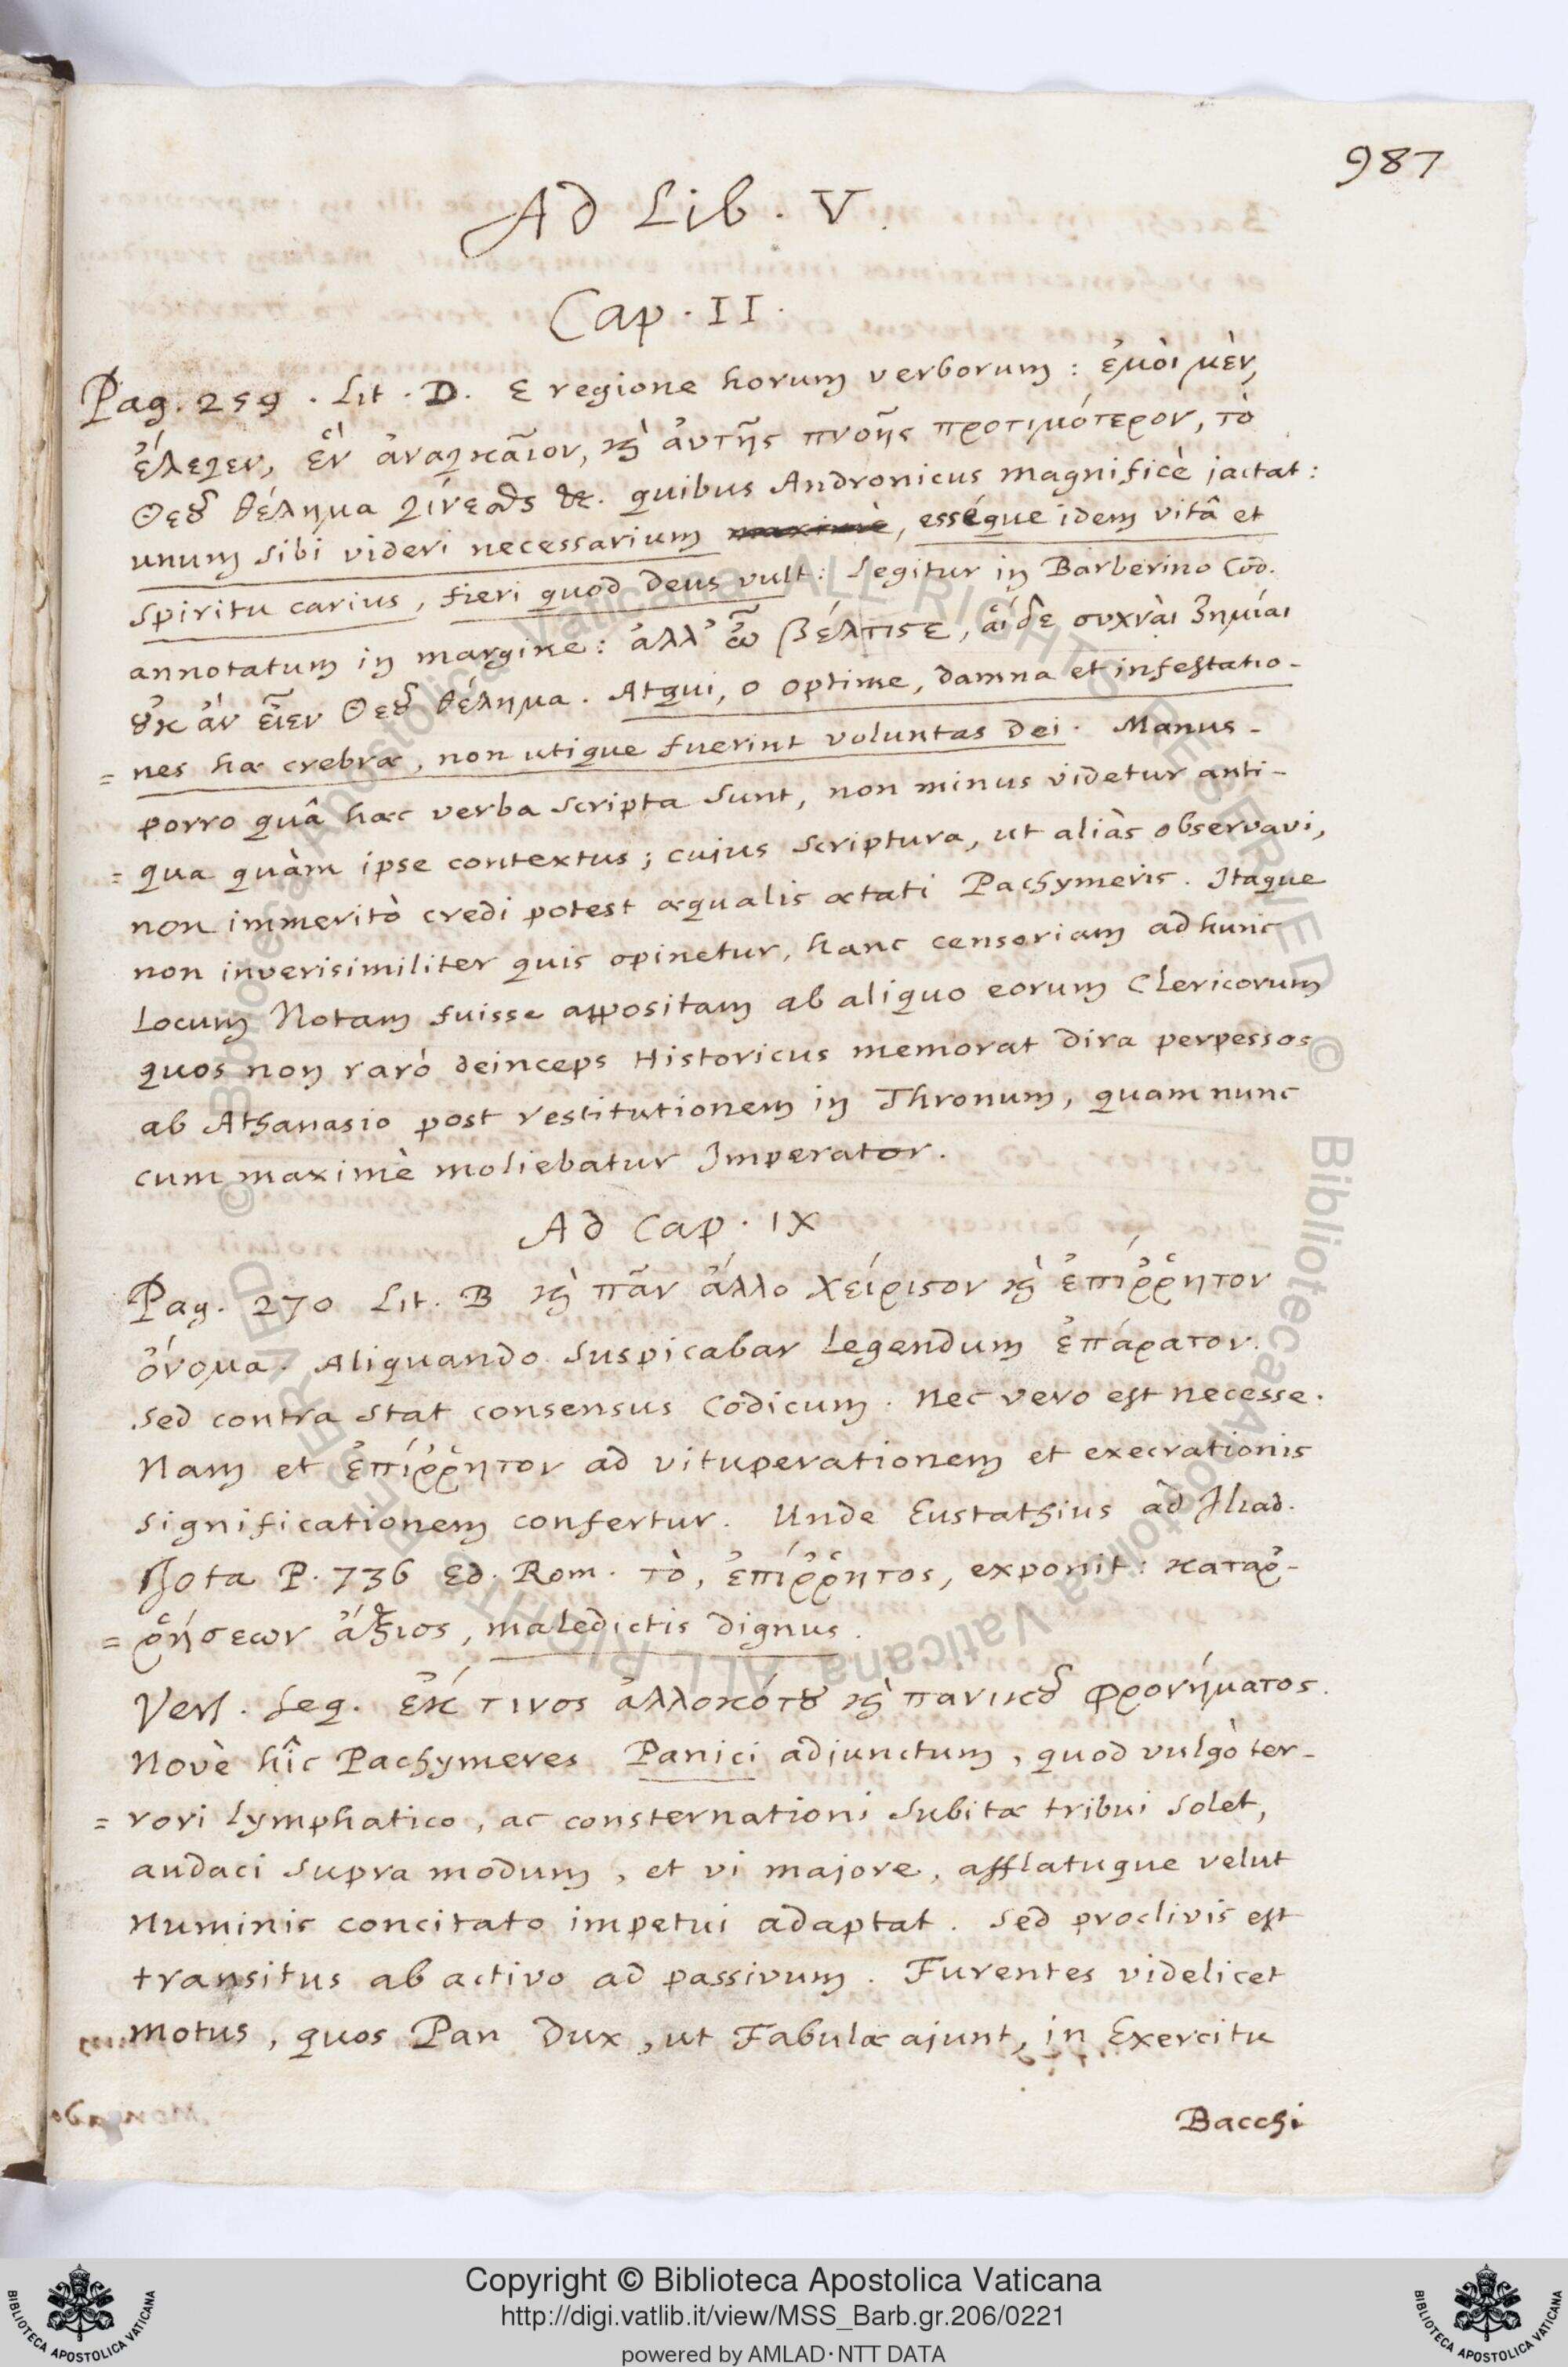 987
Ad Lib. V.
Cap. II.
Pag. 259. Lit. D. E regione horum verborum: ἐμὸι μὲν,
ἔλεγεν, ἓν ἀναγκαῖον, καὶ ἀυτῆς πνοῆς προτιμότερον, τὸ
Θεοῦ θέλημα γίνεσθαι &c. quibus Andronicus magnificè jactat:
unum sibi videri necessarium maximè, esséque idem vitâ et
spiritu carius, fieri quod Deus vult: Legitur in Barberino Cod.
annotatum in margine: ἀλλ' ὦ βέλτιστε, ἅιδε συχνὰι ζημίαι
οὐκ ἀν εἶεν Θεοῦ θέλημα. Atqui, o optime, damna et infestatio-
= nes hæ crebræ, non utique fuerint voluntas Dei. Manus-
porro quâ hæc verba scripta sunt, non minus videtur anti-
= qua quàm ipse contextus; cujus scriptura, ut aliàs observavi,
non immeritò credi potest æqualis ætati Pachymeris. Itaque
non inverisimiliter quis opinetur, hanc censoriam ad hunc
Locum Notam fuisse appositam ab aliquo eorum Clericorum
quos non rarò deinceps Historicus memorat dira perpessos
ab Athanasio post restitutionem in Thronum, quam nunc
cum maximè moliebatur Imperator.
Ad Cap. IX
Pag. 270 Lit. B καὶ πᾶν ἄλλο χείριστον καὶ ἐπίῤῥητον
ὄνομα. Aliquando suspicabar legendum ἐπάρατον.
Sed contra stat consensus Codicum. Nec vero est necesse.
Nam et ἐπίῤῥητον ad vituperationem et execrationis
significationem confertur. Unde Eustathius ad Iliad.
Iota P. 736 Ed. Rom. τὸ, ἐπίῤῥητος, exponit: καταῤ-
= ῥήσεων ἄξιος, maledictis dignus.
Vers. seq. ἐκ τινος ἀλλοκότου καὶ πανικοῦ φρονήματος.
Novè hîc Pachymeres Panici adjunctum, quod vulgò ter-
= rori lymphatico, ac consternationi subitæ tribui solet,
audaci supra modum, et vi majore, afflatuque velut
Numinis concitato impetui adaptat. Sed proclivis est
transitus ab activo ad passivum. Furentes videlicet
motus, quos Pan Dux, ut Fabulæ ajunt, in Exercitu
Bacchi
© Biblioteca Apostolica Vaticana ALL RIGHTS RESERVED © Biblioteca Apostolica Vaticana ALL RIGHTS RESERVED
BIBLIOTECA APOSTOLICA VATICANA
Copyright © Biblioteca Apostolica Vaticana
http://digi.vatlib.it/view/MSS_Barb.gr.206/0221
powered by AMLAD·NTT DATA
BIBLIOTECA APOSTOLICA VATICANA